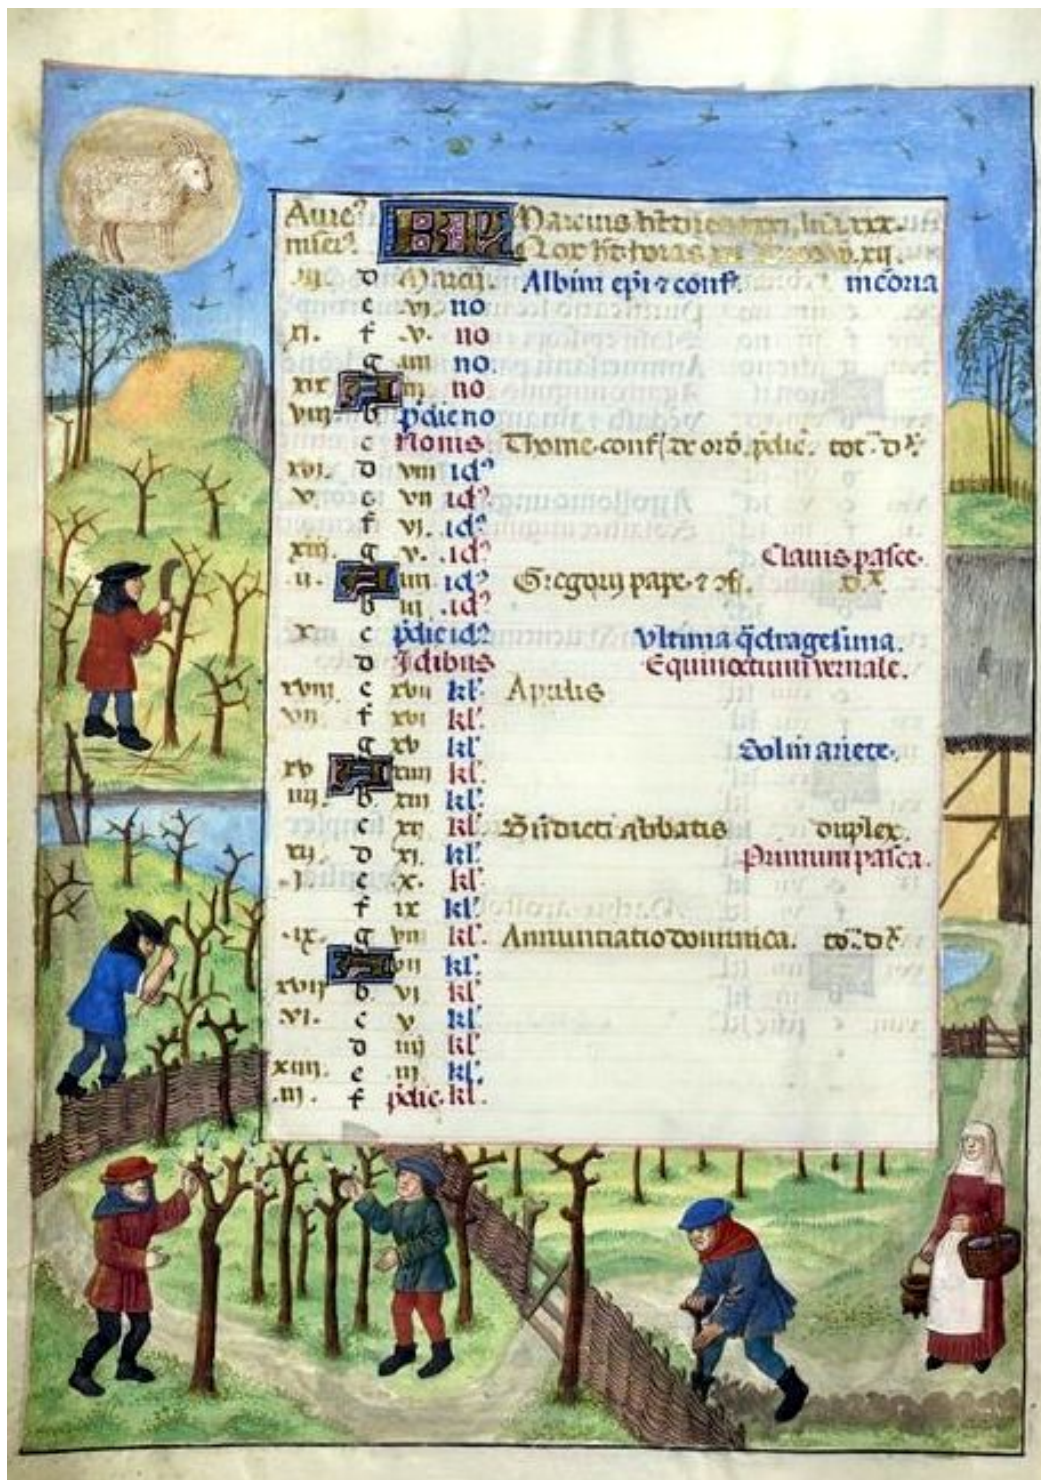 KL Marcius h̄t dies xxxi, lu᷑ xxx.
Nox h̄t horas xii
iij. d Marcij. Albini ep̄i ⁊ conf᷒. in cōna
e vj. no
xj. f .v. no
g iiii no.
xix iij no
viij. b p̄die no
c Nonis Thome conf᷒ de ord̄. p̄dic̄. tot̄ d᷒x
xvj. d viii id᷒
v. e vii id᷒
f vj. id᷒
xiii. g v. id᷒ Clauis pasce.
ii. iiii id᷒ Gregorij pape ⁊ xi x
b iii .id᷒
x. c p̄die id᷒ Vltima q̄dragesima.
d Idibus Equinoctium vernale.
xviii. e xvii kl᷒
vii. f xvi kl᷒
g xv kl᷒ Sol in ariete.
xv xiiii kl᷒
iiij. b. xiii kl᷒
c xij kl᷒ B̄ndicti Abbatis duplex.
xij. d xj. kl᷒ Primum pasca.
.j. e x. kl᷒
f ix kl᷒
.ix. g viii kl᷒. Annunciatio dominica. to᷒. d᷒x
vii kl᷒.
xvij b. vj kl᷒
.vj. c v kl᷒.
d iiij kl᷒
xiiij. e iij kl᷒.
.iij. f p̄die. kl᷒.